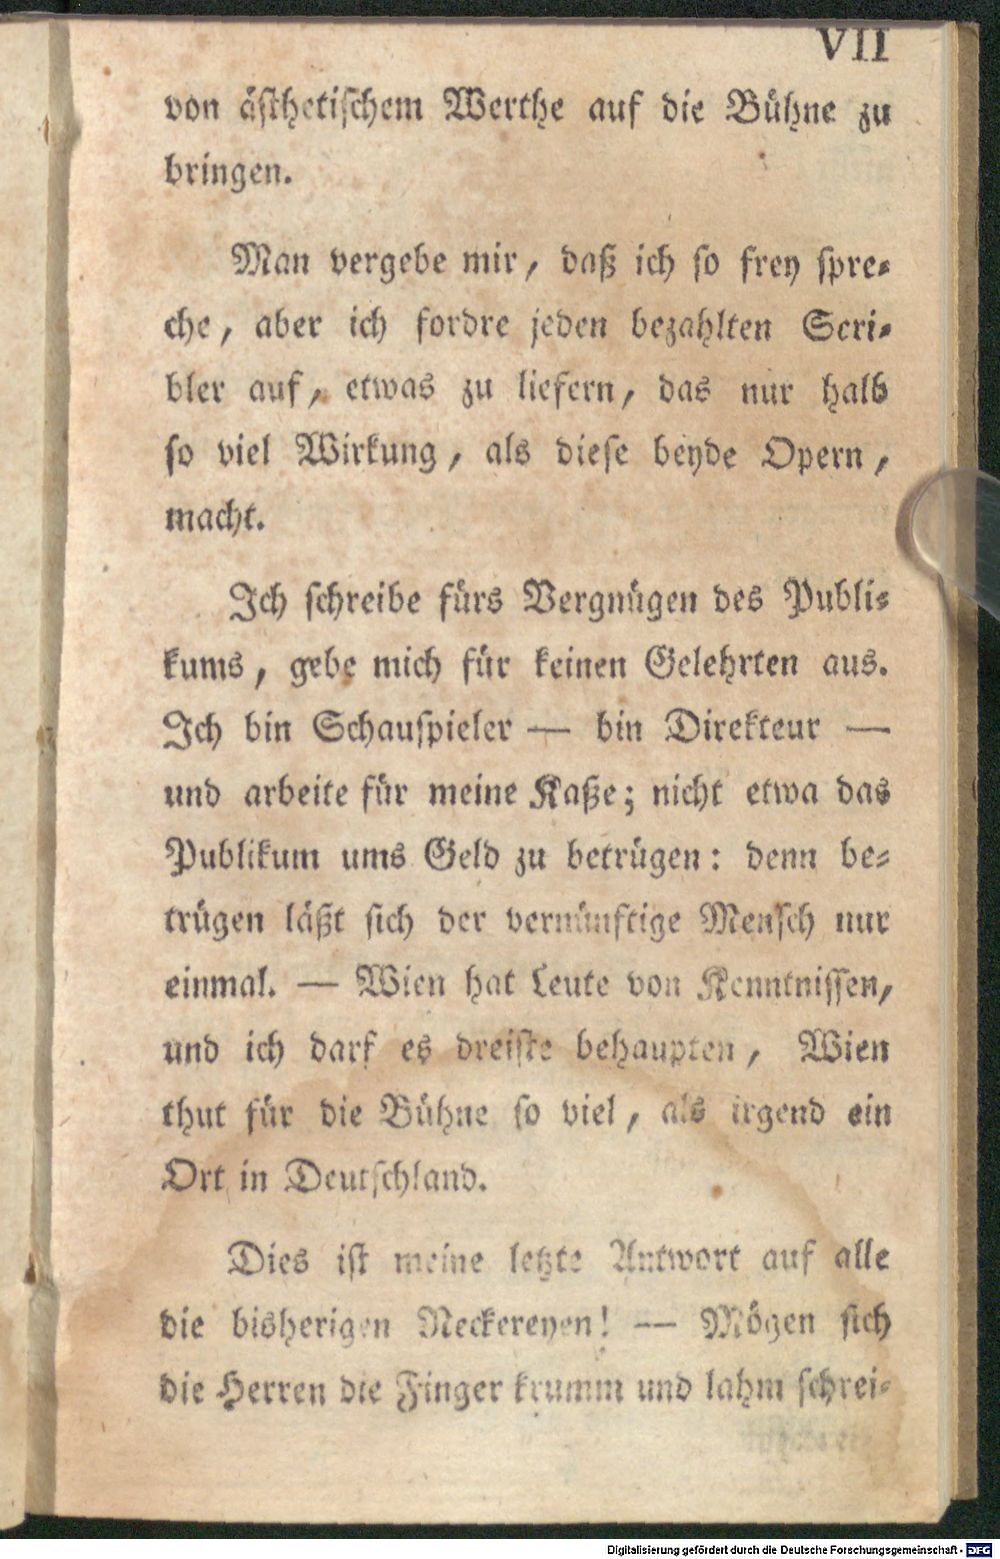 VII
von ästhetischem Werthe auf die Bühne zu
bringen.
Man vergebe mir, daß ich so frey spre-
che, aber ich fordre jeden bezahlten Scri-
bler auf, etwas zu liefern, das nur halb
so viel Wirkung, als diese beyde Opern,
macht.
Ich schreibe fürs Vergnügen des Publi-
kums, gebe mich für keinen Gelehrten aus.
Ich bin Schauspieler — bin Direkteur —
und arbeite für meine Kaße; nicht etwa das
Publikum ums Geld zu betrügen: denn be-
trügen läßt sich der vernünftige Mensch nur
einmal. — Wien hat Leute von Kenntnissen,
und ich darf es dreiste behaupten, Wien
thut für die Bühne so viel, als irgend ein
Ort in Deutschland.
Dies ist meine letzte Antwort auf alle
die bisherigen Neckereyen! — Mögen sich
die Herren die Finger krumm und lahm schrei-
Digitalisierung gefördert durch die Deutsche Forschungsgemeinschaft - DFG